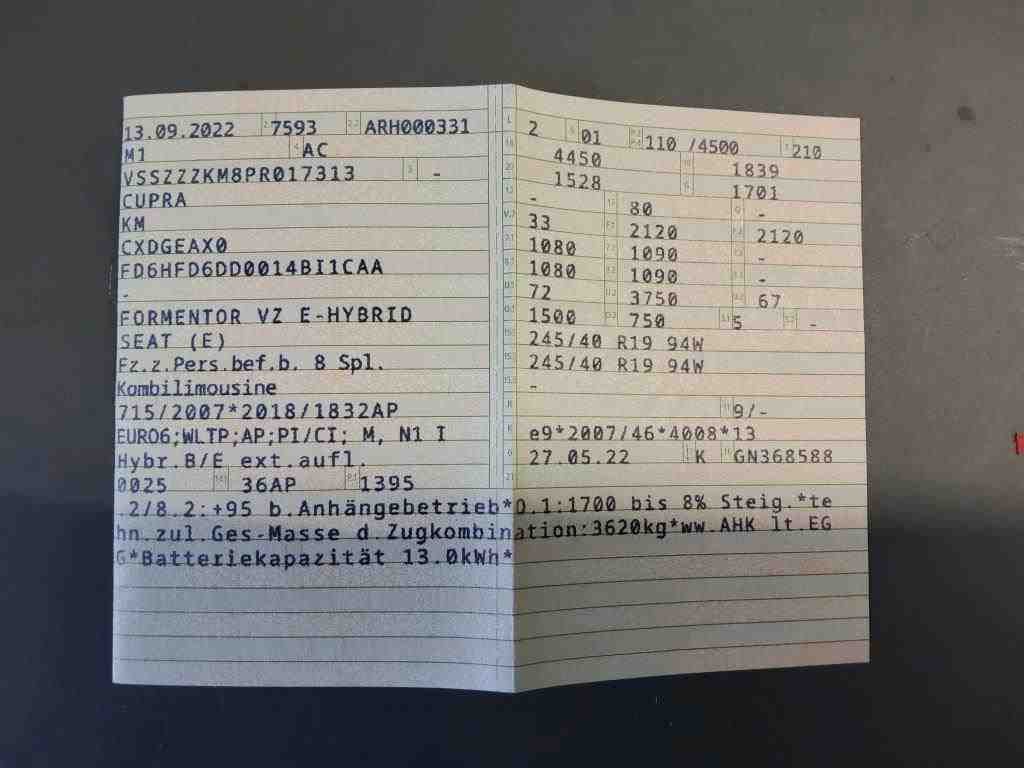 13.09.2022 7593 ARH000331
M1 AC
VSSZZZKM8PR017313 -
CUPRA
KM
CXDGEAX0
FD6HFD6DD0014BI1CAA
-
FORMENTOR VZ E-HYBRID
SEAT (E)
Fz.z.Pers.bef.b. 8 Spl.
Kombilimousine
715/2007*2018/1832AP
EURO6;WLTP;AP;PI/CI; M, N1 I
Hybr.B/E ext.aufl.
0025 36AP 1395
L 2 01 110 /4500 210
18 4450 1839
20 1528 1701
12 - 80 -
V.7 33 2120 2120
7.1 1080 1090 -
8.1 1080 1090 -
U.1 72 3750 67
O.1 1500 750 5 -
15.1 245/40 R19 94W
15.2 245/40 R19 94W
15.3 -
R 9/-
K e9*2007/46*4008*13
6 27.05.22 K GN368588
21
.2/8.2:+95 b.Anhängebetrieb*O.1:1700 bis 8% Steig.*te
hn.zul.Ges-Masse d.Zugkombination:3620kg*ww.AHK lt.EG
G*Batteriekapazität 13.0kWh*